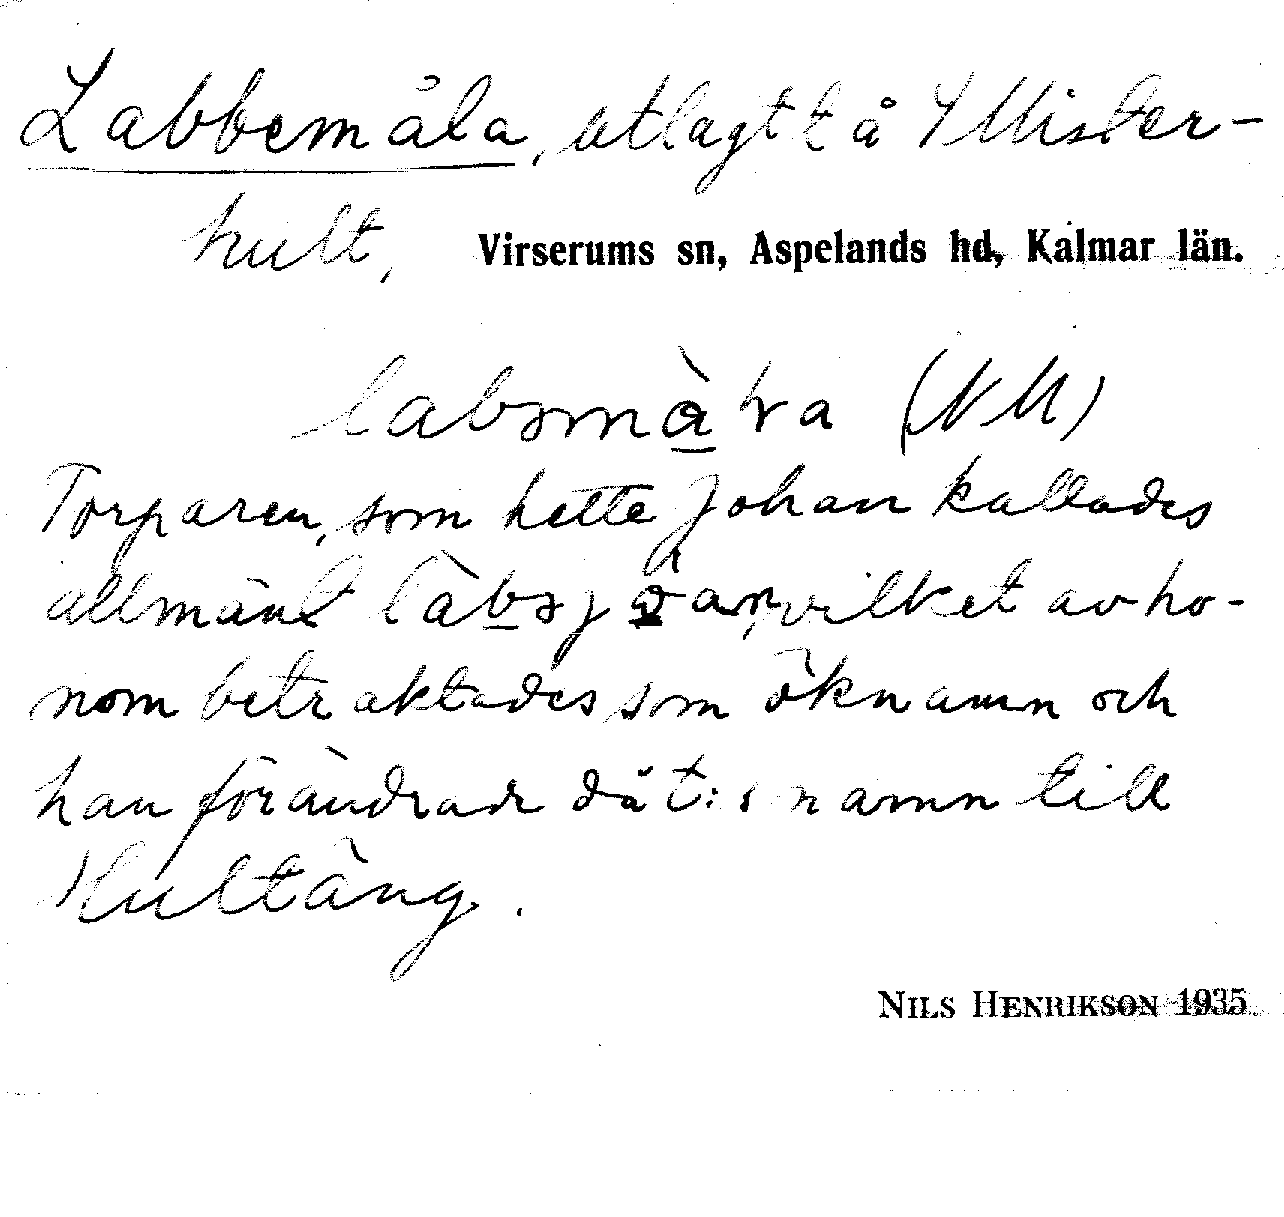 Labbemåla, utlagt t å Mister-
hult, Virserums sn, Aspelands hd, Kalmar län.
(NM)
Torparen, som hette Johan kallades
allmänt vilket av ho-
nom betraktades som öknamn och
han förändrade då t:s namn till
Hultäng.
NILS HENRIKSON 1935